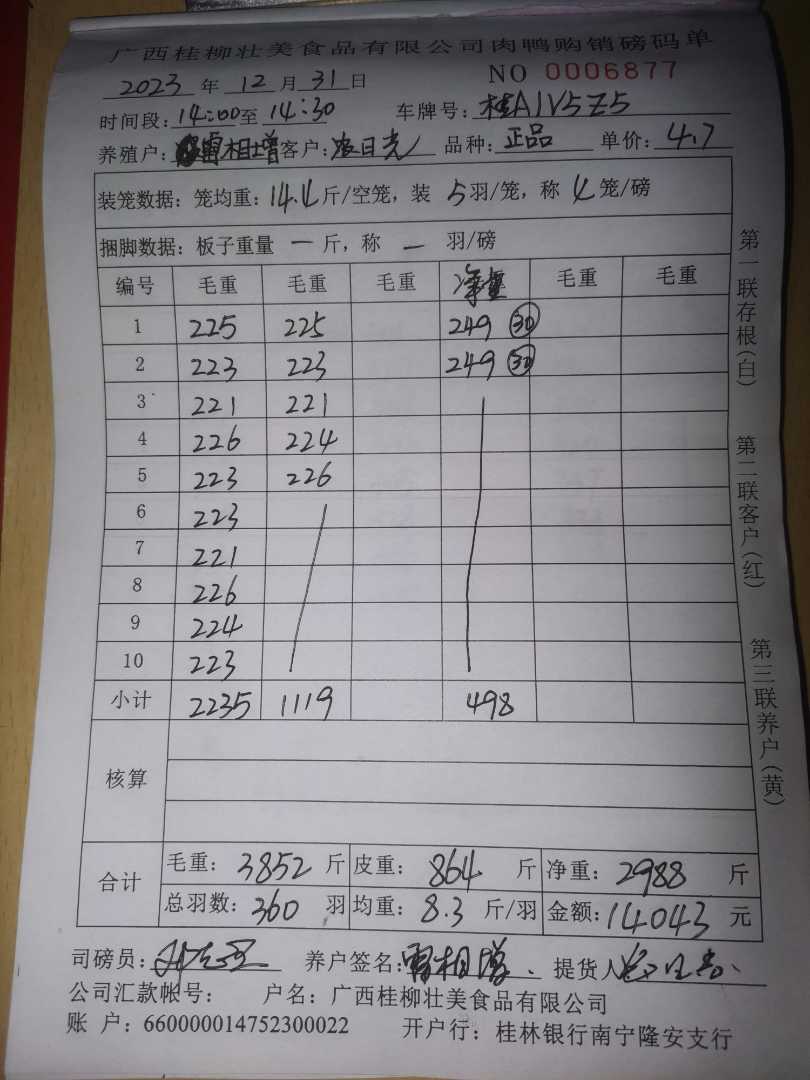 广西桂柳壮美食品有限公司肉鸭购销磅码单
2023 年 12 月 31 日 NO 0006877
时间段: 14:00 至 14:30 车牌号: 桂A1V5Z5
养殖户: 雷相增 客户: 凌日光 品种: 正品 单价: 4.7
装笼数据: 笼均重: 14.4 斤/空笼, 装 5 羽/笼, 称 4 笼/磅
捆脚数据: 板子重量 一 斤, 称 一 羽/磅
编号 毛重 毛重 毛重 净重 毛重 毛重
1 225 225 249 30
2 223 223 249 30
3 221 221
4 226 224
5 223 226
6 223
7 221
8 226
9 224
10 223
小计 2235 1119 498
核算
合计 毛重: 3852 斤 皮重: 864 斤 净重: 2988 斤
总羽数: 360 羽 均重: 8.3 斤/羽 金额: 14043 元
司磅员: 养户签名: 雷相增、 提货人
公司汇款帐号: 户名: 广西桂柳壮美食品有限公司
账 户: 660000014752300022 开户行: 桂林银行南宁隆安支行
第一联存根(白)
第二联客户(红)
第三联养户(黄)